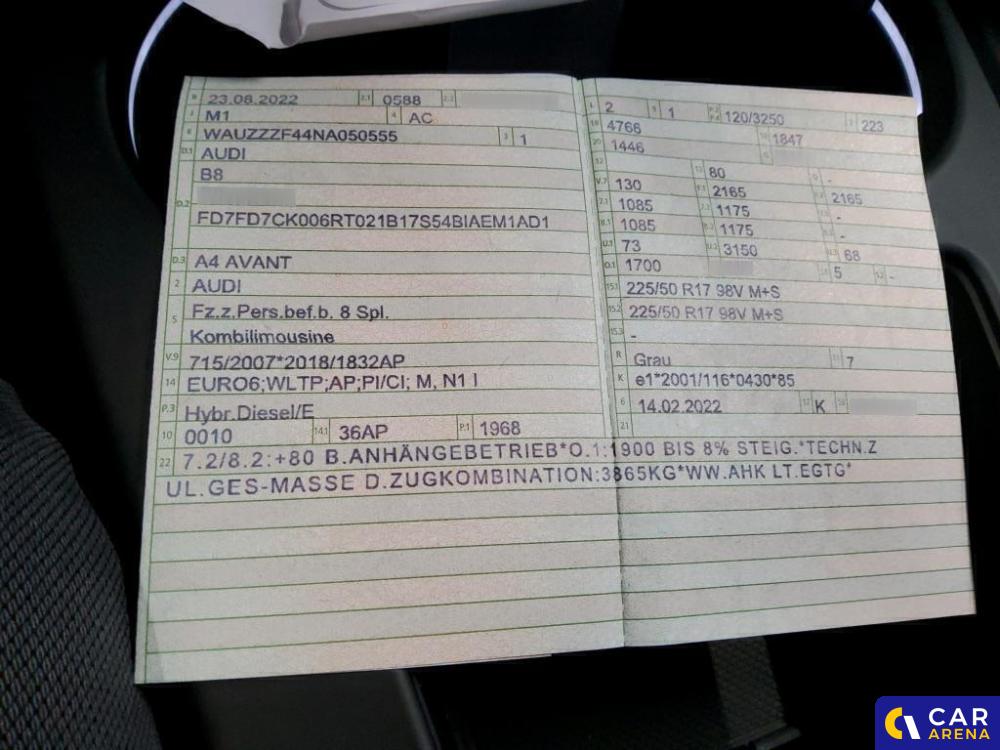 B 23.08.2022 2.1 0588 2.2
J M1 4 AC
E WAUZZZF44NA050555 3 1
D.1 AUDI
B8
D.2
FD7FD7CK006RT021B17S54BIAEM1AD1
D.3 A4 AVANT
2 AUDI
5 Fz.z.Pers.bef.b. 8 Spl.
Kombilimousine
V.9 715/2007*2018/1832AP
14 EURO6;WLTP;AP;PI/CI; M, N1 I
P.3 Hybr.Diesel/E
10 0010 14.1 36AP P.1 1968
22 7.2/8.2:+80 B.ANHÄNGEBETRIEB*O.1:1900 BIS 8% STEIG.*TECHN.Z
UL.GES-MASSE D.ZUGKOMBINATION:3865KG*WW.AHK LT.EGTG*
L 2 9 1 P.2 P.4 120/3250 T 223
18 4766 19 1847
20 1446 G
12 13 80 Q -
V.7 130 F.1 2165 F.2 2165
7.1 1085 7.2 1175 7.3 -
8.1 1085 8.2 1175 8.3 -
U.1 73 U.2 3150 U.3 68
O.1 1700 S.1 5 S.2 -
15.1 225/50 R17 98V M+S
15.2 225/50 R17 98V M+S
15.3 -
R Grau 11 7
K e1*2001/116*0430*85
6 14.02.2022 17 K 16
21
CAR
ARENA